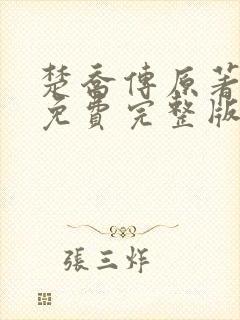 楚喬傳原著
免費完整版
張三炸